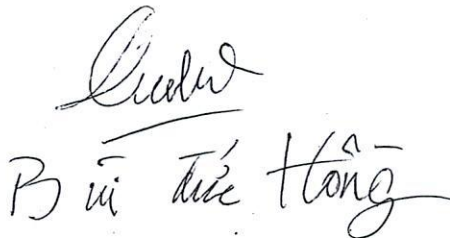 Bùi Đức Hồng